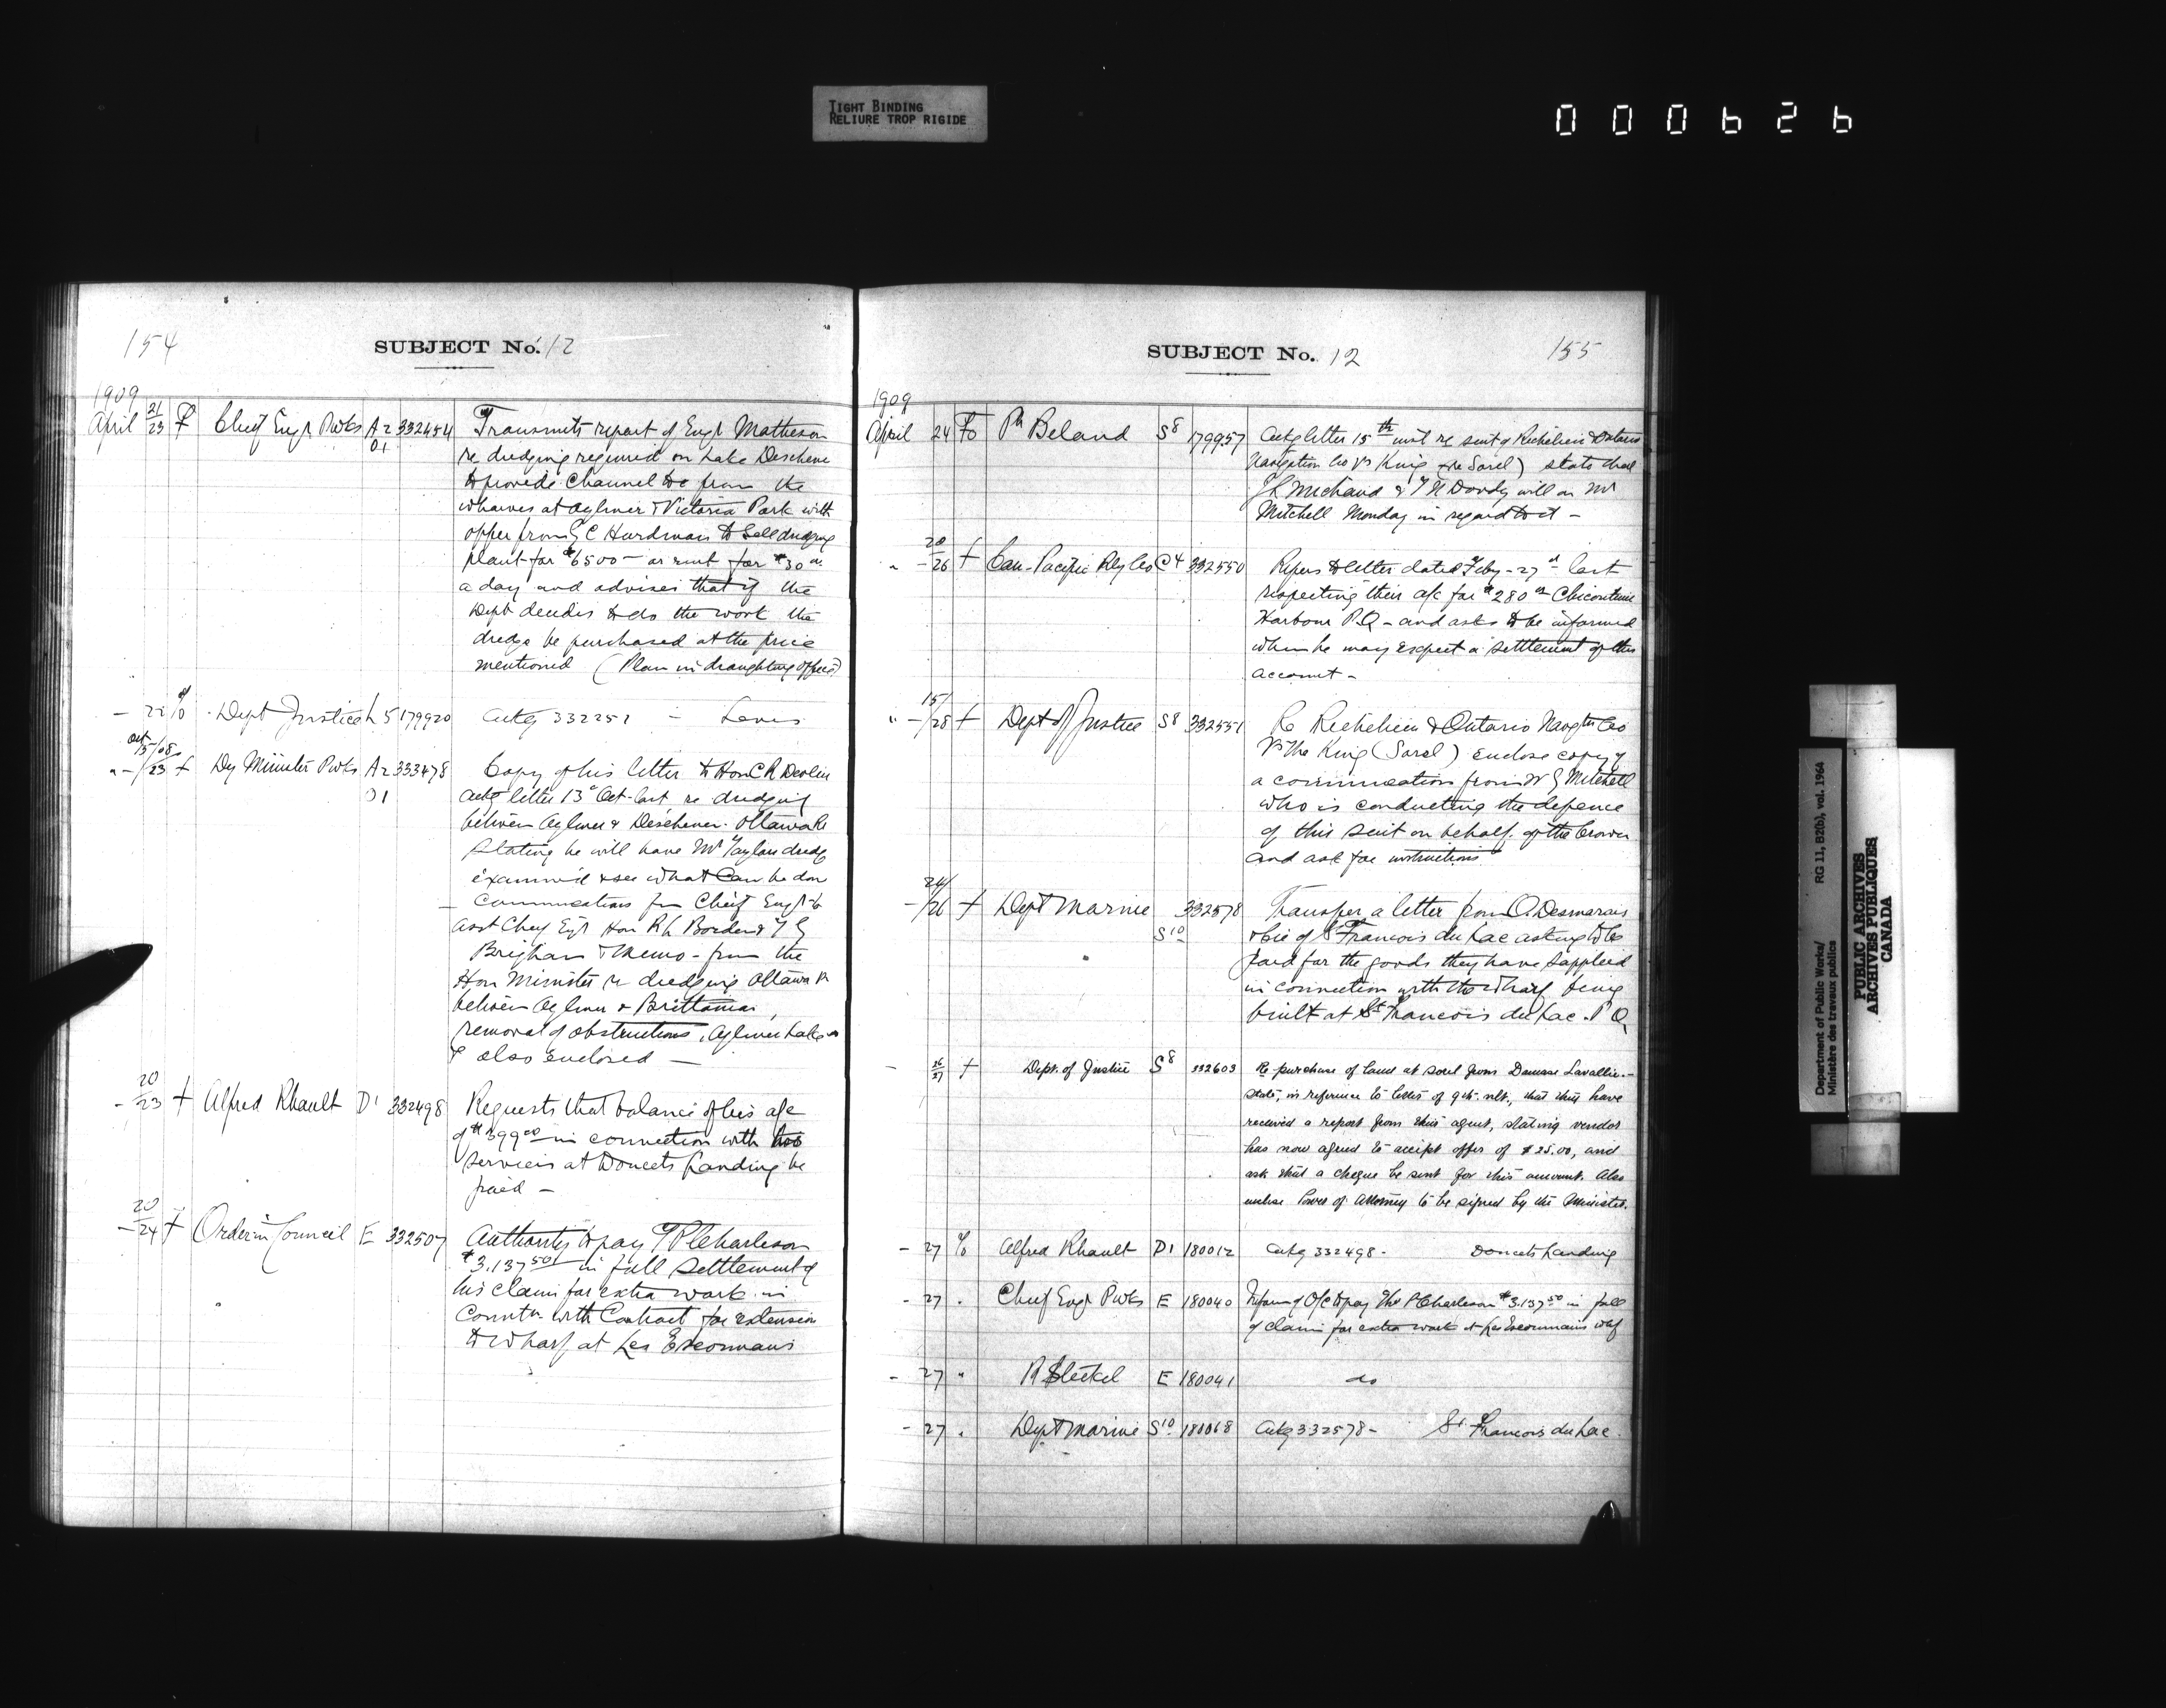 TIGHT BINDING
RELIURE TROP RIGIDE
000626
154
SUBJECT No. 12
1909
April 21/23 f Chief Engr Pwks A2 01 332454 Transmits report of Engr Matheson
re dredging required on Lake Deschene
to provide Channel to & from the
wharves at Aylmer & Victoria Park with
offer from E C Hurdman to sell dredging
plant for $6500 – or rent for $30 00
a day and advises that if the
Dept decides to do the work the
dredge be purchased at the price
mentioned (Plan in draughting office)
– 22 Dept Justice L 5 179920 ackg 332251 – Levis
Oct 15/08
" – /23 f Dy Minister Pwks A2 01 333478 Copy of his letter to Hon C R Devlin
ackg letter 13 Oct last re dredging
between Aylmer & Deschenes Ottawa R
stating he will have Mr Taylors dredge
examined & see what can be done
– Communications from Chief Engr to
Asst Chief Engr Hon R L Borden &
Brigham & Memo – from the
Hon Minister re dredging Ottawa R
between Aylmer & Brittania,
removal of obstructions, Aylmer Lake
also enclosed –
– 20/23 f Alfred Rheault D1 332498 Requests that balance of his a/c
of $399 00 in connection with his
services at Doucets Landing be
paid –
– 20/24 f Order in Council E 332507 Authority to pay T P Charleson
$3.137 50 in full settlement of
his claim for extra work in
Connctn with Contract for extension
to wharf at Les Escoumains
SUBJECT No. 12
155
1909
April 24 To Ph Beland S8 179957 Ackg letter 15th inst re suit of Richelieu & Ontario
Navigation Co vs King (re Sorel) state that
Michaud & Doody will see Mr
Mitchell Monday in regard to it –
" – 20/26 f Can. Pacific Rly Co C4 332550 Refers to letter dated Feby – 27th last
respecting their a/c for $280 Chicoutimi
Harbour P.Q – and asks to be informed
when he may expect a settlement of this
account –
" – 15/28 f Dept of Justice S8 332551 Re Richelieu & Ontario Navgtn Co
Vs The King (Sorel) enclose copy of
a communication from W G Mitchell
who is conducting the defence
of this suit on behalf of the Crown
and ask for instructions
– 24/26 f Dept Marine S10 332578 Transfer a letter from O. Desmarais
& Cie of St Francois du Lac asking to be
paid for the goods they have supplied
in connection with the wharf being
built at St Francois du Lac. P Q
– 26/27 f Dept. of Justice S8 332603 Re purchase of land at Sorel from Damase Lavallie –
state, in reference to letter of 9th ult., that they have
received a report from their agent, stating vendor
has now agreed to accept offer of $25.00, and
ask that a cheque be sent for this amount. Also
enclose Power of Attorney to be signed by the Minister.
– 27 Alfred Rheault D1 180012 Ackg 332498 – Doucets Landing
– 27 . Chief Engr Pwks E 180040 Inform of O/C to pay Thos P Charleson $3.137 50 in full
of claim for extra work at Les Escoumains whf
– 27 " R Steckel E 180041 do
– 27 . Dept Marine S10 180068 Ackg 332578 – St Francois du Lac
Department of Public Works/
Ministère des travaux publics
RG 11, B2(b), vol. 1964
PUBLIC ARCHIVES
ARCHIVES PUBLIQUES
CANADA